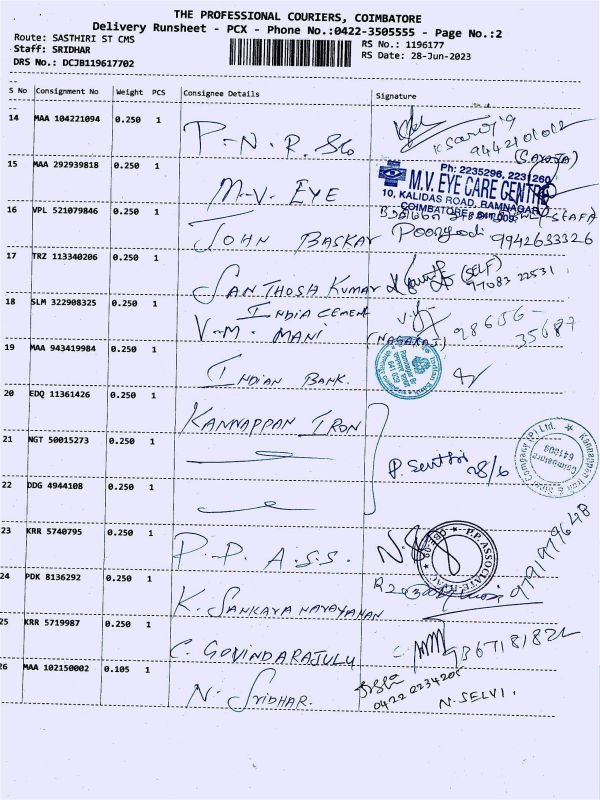 THE PROFESSIONAL COURIERS, COIMBATORE
Delivery Runsheet - PCX - Phone No.:0422-3505555 - Page No.:2
Route: SASTHIRI ST CMS
RS No.: 1196177
Staff: SRIDHAR
RS Date: 28-Jun-2023
DRS No.: DCJB119617702
S No Consignment No Weight PCS Consignee Details Signature
14 MAA 104221094 0.250 1 P-N.R. So
9442101012
(SAROJA)
15 MAA 292939818 0.250 1 M-V- EYE
Ph: 2235296, 2231260
M.V. EYE CARE CENTRE
10, KALIDAS ROAD, RAMNAGAR
COIMBATORE - 641 009.
16 VPL 521079846 0.250 1 JOHN BASKAR
Poongodi 9942633326
17 TRZ 113340206 0.250 1 SANTHOSH KUMAR (SELF)
77083 22531
18 SLM 322908325 0.250 1 INDIA CEMENT
V-M- MANI
(NAGARAJ) 98656-
35687
19 MAA 943419984 0.250 1 INDIAN BANK.
20 EDQ 11361426 0.250 1 KANNAPPAN IRON
21 NGT 50015273 0.250 1
P Senthil 28/6
Kannappan Iron & Steel Company (P) Ltd.
Coimbatore
641009
22 DDG 4944108 0.250 1
23 KRR 5740795 0.250 1 P.P. A.S.S.
P.P. ASSOCIATE
24 PDK 8136292 0.250 1 K. SANKARA NARAYANAN
9791979648
25 KRR 5719987 0.250 1 C. GOVINDARAJULU
9367181822
26 MAA 102150002 0.105 1 N. SRIDHAR.
0422 2234205
N-SELVI.